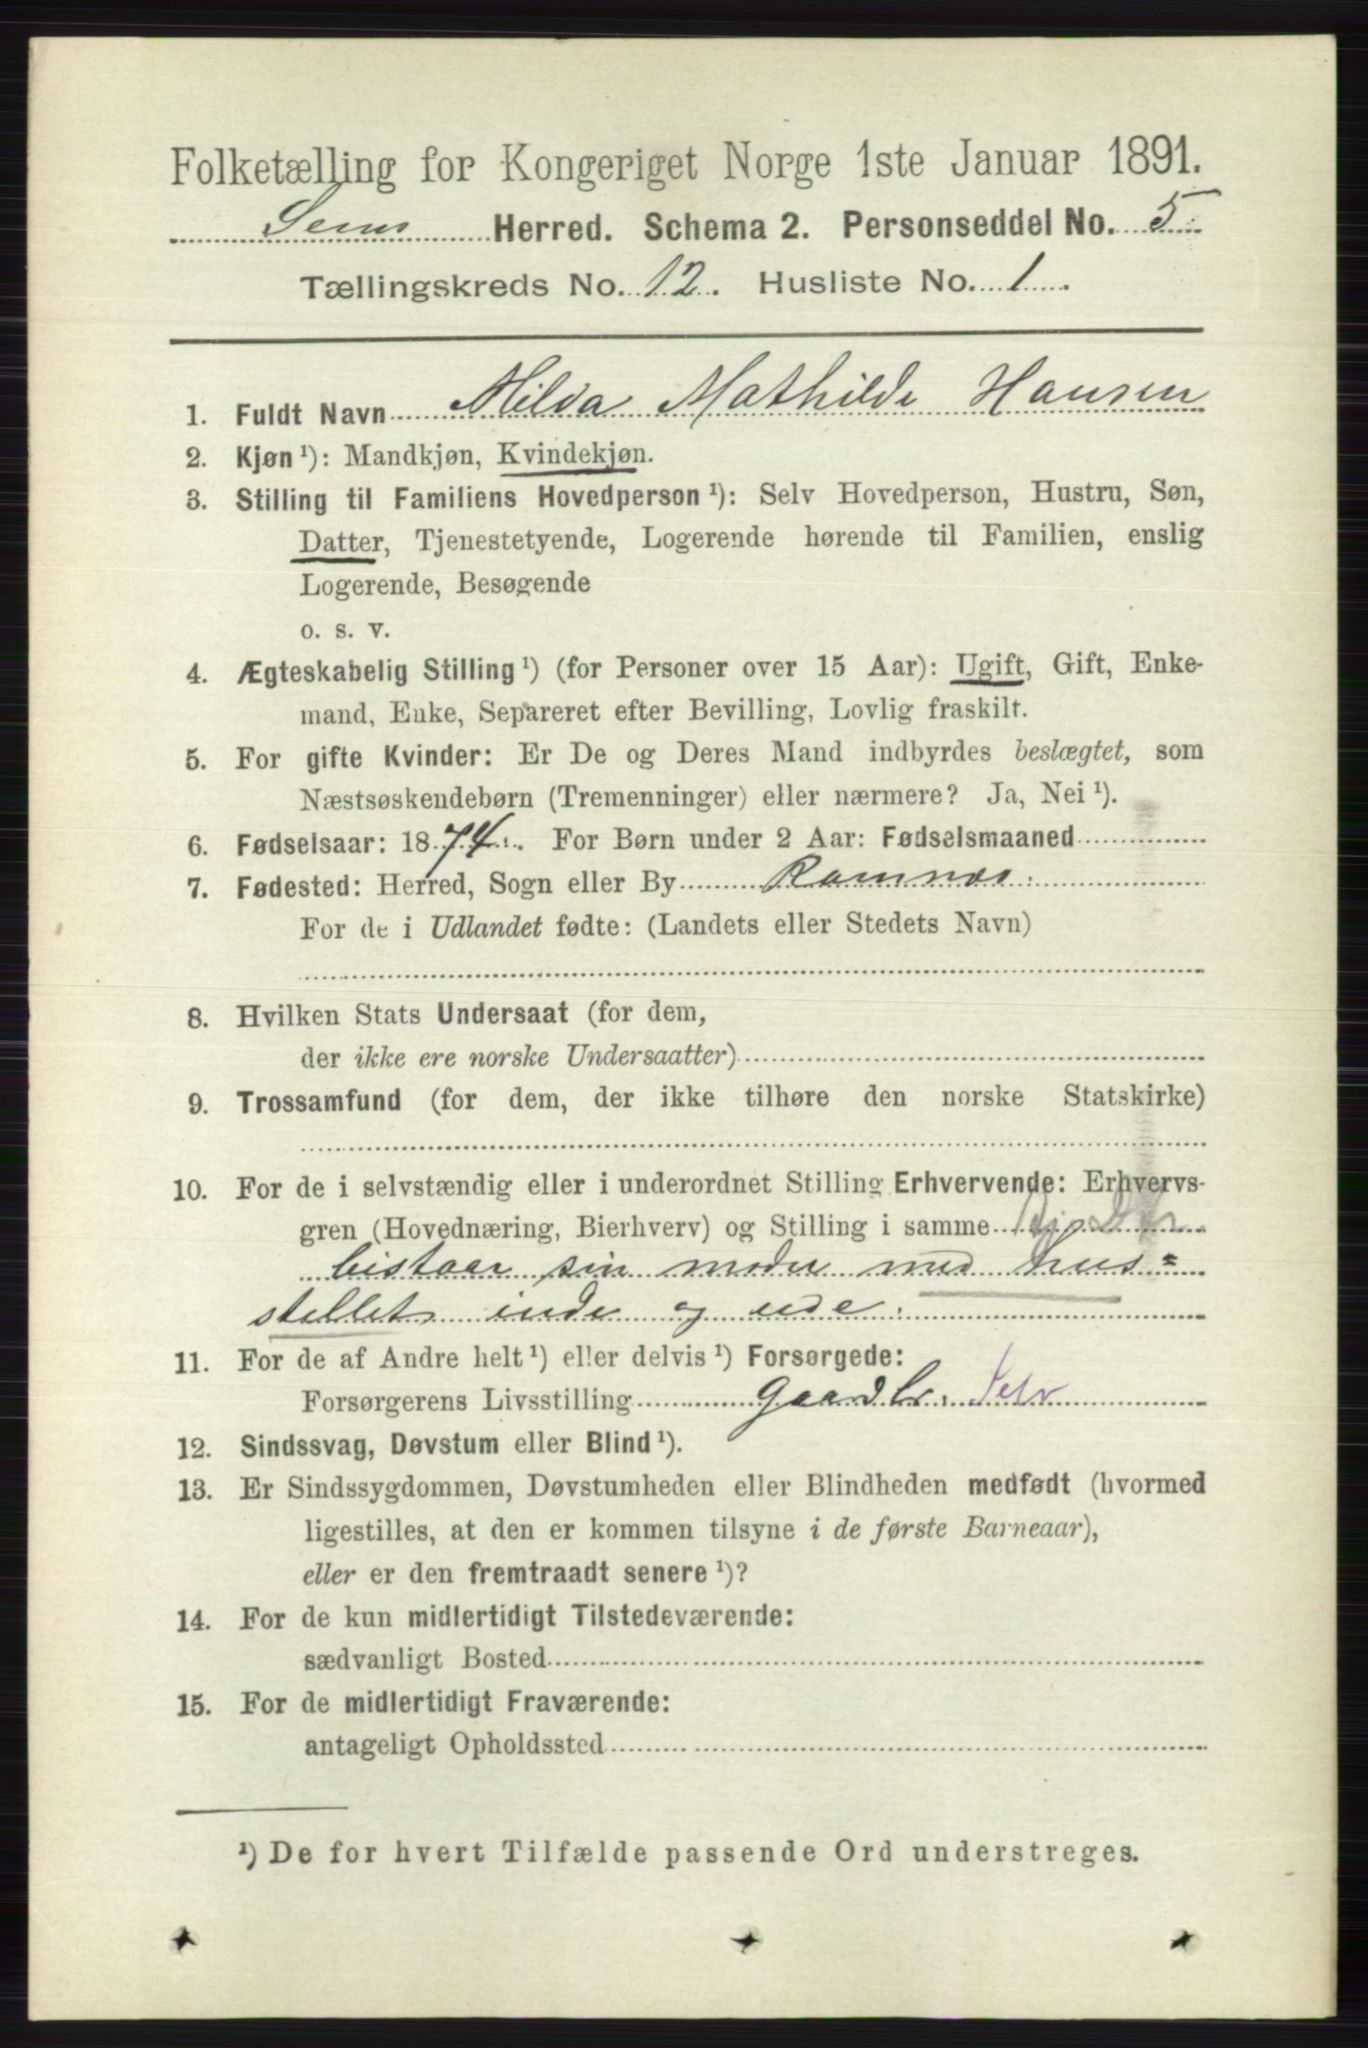 Folketælling for Kongeriget Norge 1ste Januar 1891.
Sems Herred. Schema 2. Personseddel No. 5
Tællingskreds No. 12. Husliste No. 1.
1. Fuldt Navn Milda Mathilde Hansen
2. Kjøn ¹): Mandkjøn, Kvindekjøn.
3. Stilling til Familiens Hovedperson ¹): Selv Hovedperson, Hustru, Søn,
Datter, Tjenestetyende, Logerende hørende til Familien, enslig
Logerende, Besøgende
o. s. v.
4. Ægteskabelig Stilling ¹) (for Personer over 15 Aar): Ugift, Gift, Enke-
mand, Enke, Separeret efter Bevilling, Lovlig fraskilt.
5. For gifte Kvinder: Er De og Deres Mand indbyrdes beslægtet, som
Næstsøskendebørn (Tremenninger) eller nærmere? Ja, Nei ¹).
6. Fødselsaar: 1874. For Børn under 2 Aar: Fødselsmaaned
7. Fødested: Herred, Sogn eller By Ramnæs
For de i Udlandet fødte: (Landets eller Stedets Navn)
8. Hvilken Stats Undersaat (for dem,
der ikke ere norske Undersaatter)
9. Trossamfund (for dem, der ikke tilhøre den norske Statskirke)
10. For de i selvstændig eller i underordnet Stilling Erhvervende: Erhvervs-
gren (Hovednæring, Bierhverv) og Stilling i samme
bistaar sin moder med hus=
stellet inde og ude.
11. For de af Andre helt ¹) eller delvis ¹) Forsørgede:
Forsørgerens Livsstilling Gaardbr. Selv
12. Sindssvag, Døvstum eller Blind ¹).
13. Er Sindssygdommen, Døvstumheden eller Blindheden medfødt (hvormed
ligestilles, at den er kommen tilsyne i de første Barneaar),
eller er den fremtraadt senere ¹)?
14. For de kun midlertidigt Tilstedeværende:
sædvanligt Bosted
15. For de midlertidigt Fraværende:
antageligt Opholdssted
¹) De for hvert Tilfælde passende Ord understreges.